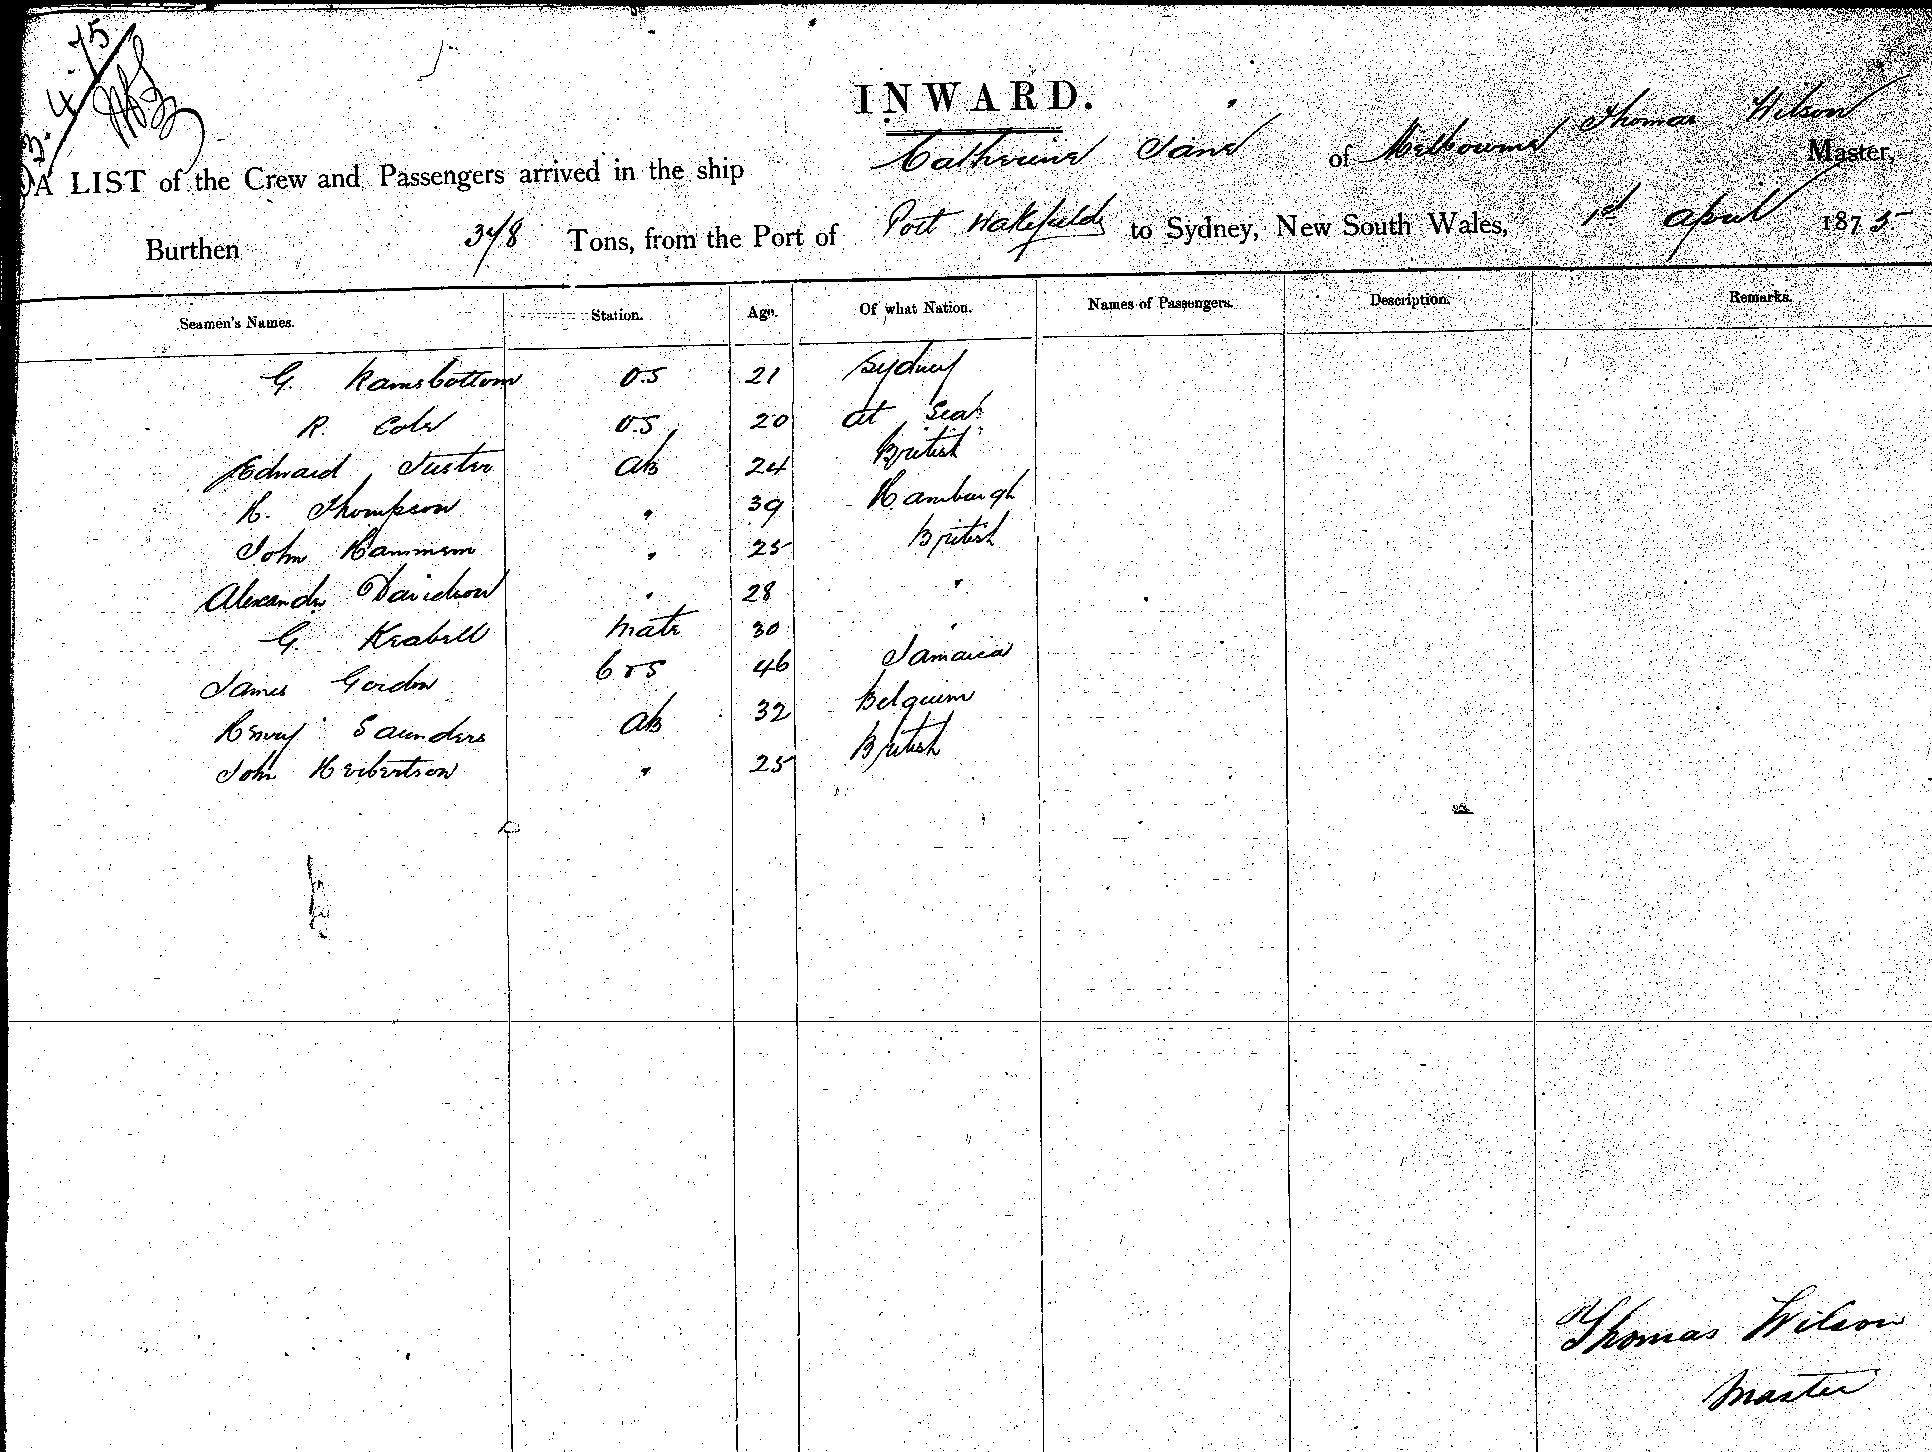 3.4.75
INWARD.
A LIST of the Crew and Passengers arrived in the ship Catherine Jane of Melbourne Thomas Wilson Master,
Burthen 348 Tons, from the Port of Port Wakefield to Sydney, New South Wales, 1st April 1875
Seamen's Names. Station. Age. Of what Nation. Names of Passengers. Description. Remarks.
G. Ramsbottom O.S 21 Sydney
R. Cole O.S 20 at Sea
Edward AB 24 British
H. Thompson " 39 Hamburgh
John " 25 British
Alexander Davidson " 28 "
G. Mate 30 "
James Gordon 46 Jamaica
Henry Saunders AB 32 Belguim
John Herbertson " 25 British
Thomas Wilson
Master